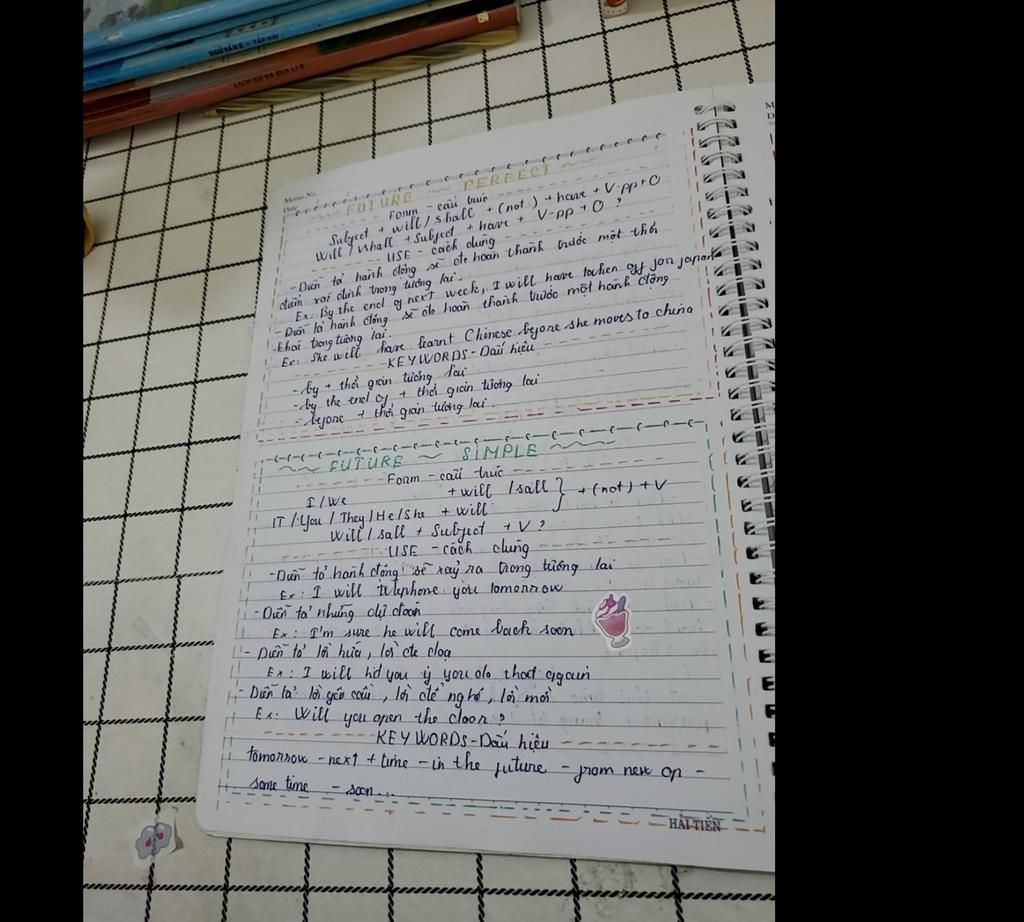 NGỮ VĂN 6 - TẬP HAI
LỊCH SỬ VÀ ĐỊA LÍ 6
Memo No.
Date
FUTURE ~ PERFECT
Form - cấu trúc
Subject + will / shall + (not) + have + V-pp + O
Will / shall + Subject + have + V-pp + O ?
USE - cách dùng
- Diễn tả hành động sẽ đc hoàn thành trước một thời
điểm xác định trong tương lai.
Ex: By the end of next week, I will have taken off for japan
- Diễn tả hành động sẽ đc hoàn thành trước một hành động
khác trong tương lai.
Ex: She will have learnt Chinese before she moves to china
KEYWORDS - Dấu hiệu
- by + thời gian tương lai
- by the end of + thời gian tương lai
- before + thời gian tương lai.
FUTURE ~ SIMPLE
Form - cấu trúc
I / We + will / sall } + (not) + V
IT / You / They / He / She + will
Will / sall + Subject + V ?
USE - cách dùng
- Diễn tả hành động sẽ xảy ra trong tương lai
Ex: I will telephone you tomorrow
- Diễn tả những dự đoán
Ex: I'm sure he will come back soon
- Diễn tả lời hứa, lời đe dọa
Ex: I will hit you if you do that again
- Diễn tả lời yêu cầu, lời đề nghị, lời mời
Ex: Will you open the door?
KEYWORDS - Dấu hiệu
tomorrow - next + time - in the future - from now on -
some time - soon...
HẢI TIẾN